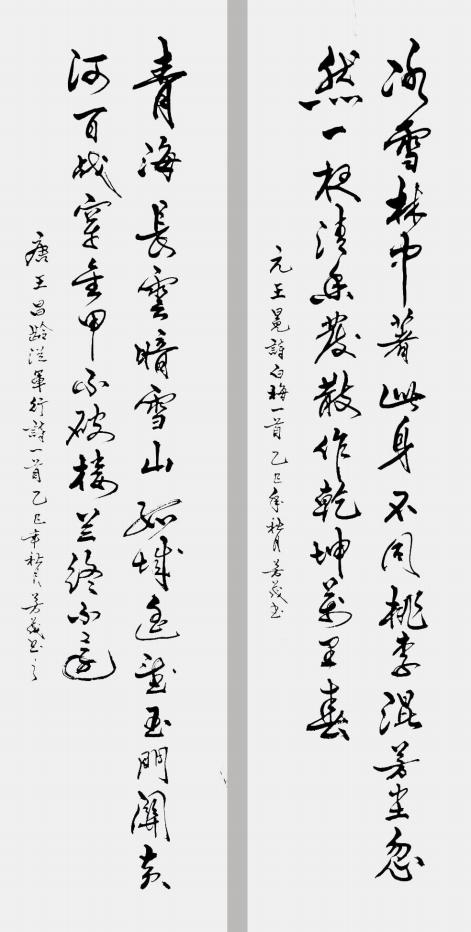 冰雪林中著此身不同桃李混芳尘忽
然一夜清香發散作乾坤萬里春
元王冕詩白梅一首乙巳年月芳书
青海長雲暗雪山孤城遥望玉門關黄
河百战穿金甲不破楼兰終不還
唐王昌齡從軍行詩一首乙巳年芳书之